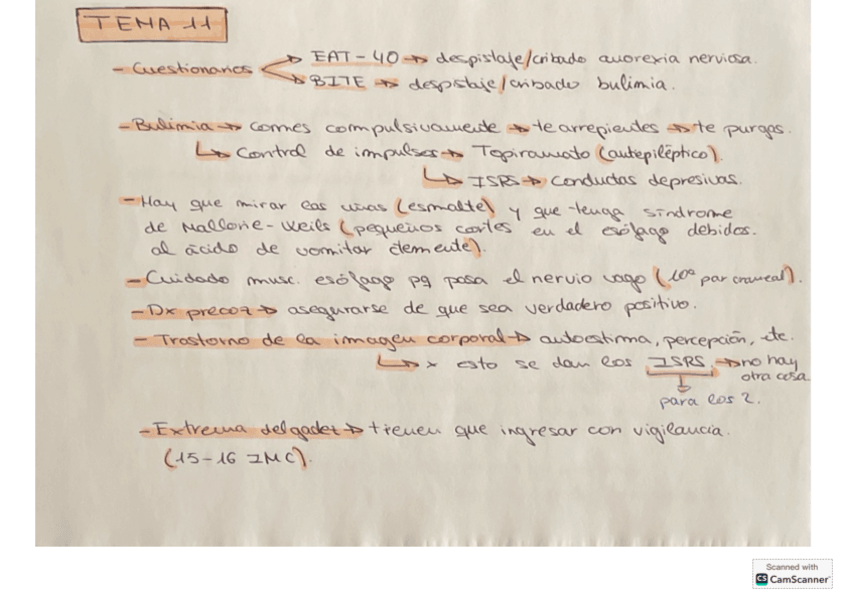 TEMA 11
- Cuestionarios → EAT-40 → despistaje/cribado anorexia nerviosa.
→ BITE → despistaje/cribado bulimia.
- Bulimia → comes compulsivamente → te arrepientes → te purgas.
↳ Control de impulsos → Topiramato (antepiléptico).
↳ ISRS → conductas depresivas.
- Hay que mirar las uñas (esmalte) y que tenga síndrome
de Mallorie-Weils (pequeños cortes en el esófago debidos.
al ácido de vomitar) .
- Cuidado musc. esófago pq pasa el nervio vago (10º par craneal).
- Dx precoz → asegurarse de que sea verdadero positivo.
- Trastorno de la imagen corporal → autoestima, percepción, etc.
↳ x esto se dan los ISRS → no hay
otra cosa
para los 2.
- Extrema delgadez → tienen que ingresar con vigilancia.
(15-16 IMC).
Scanned with
CS CamScanner